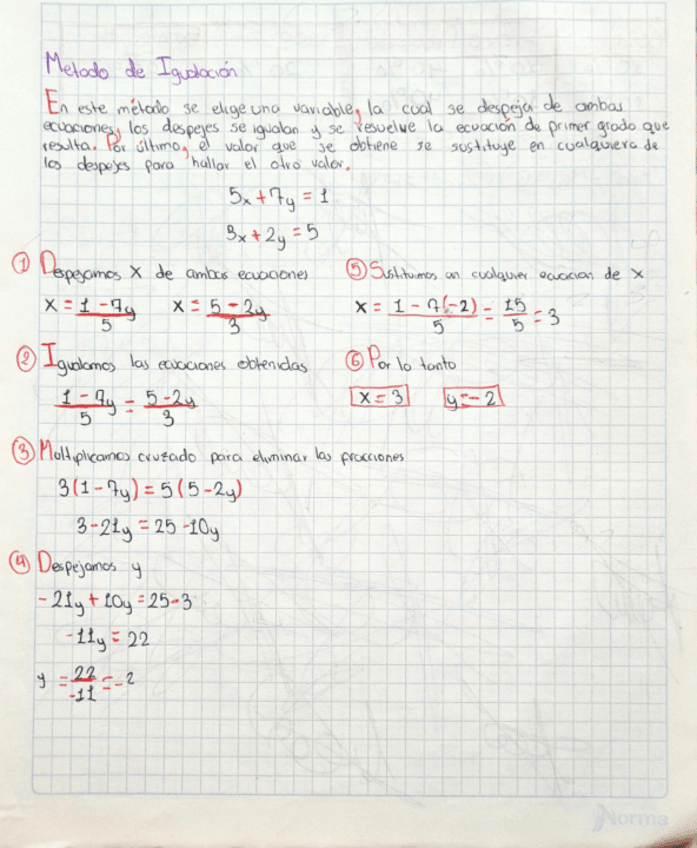 Metodo de Igualación
En este método se elige una variable, la cual se despeja de ambas
ecuaciones, los despejes se igualan y se resuelve la ecuación de primer grado que
resulta. Por último, el valor que se obtiene se sustituye en cualquiera de
los despejes para hallar el otro valor.
5x + 7y = 1
3x + 2y = 5
① Despejamos X de ambas ecuaciones
x = (1 - 7y)/5 x = (5 - 2y)/3
② Igualamos las ecuaciones obtenidas
(1 - 7y)/5 = (5 - 2y)/3
③ Multiplicamos cruzado para eliminar las fracciones
3(1 - 7y) = 5(5 - 2y)
3 - 21y = 25 - 10y
④ Despejamos y
- 21y + 10y = 25 - 3
-11y = 22
y = 22/-11 = -2
⑤ Sustituimos en cualquier ecuacion de x
x = (1 - 7(-2))/5 = 15/5 = 3
⑥ Por lo tanto
x = 3 y = -2
Norma